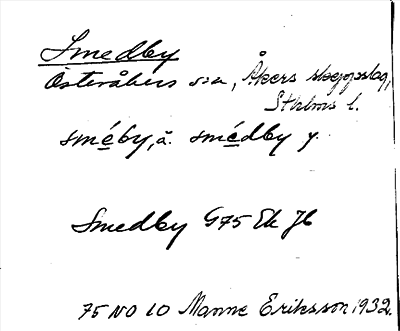 Smedby
Österåkers sn, Åkers skeppslag,
Sthlms l.
sméby, ä. smédby y.
Smedby G75 Ek Jb
75 NO 10 Manne Eriksson 1932.